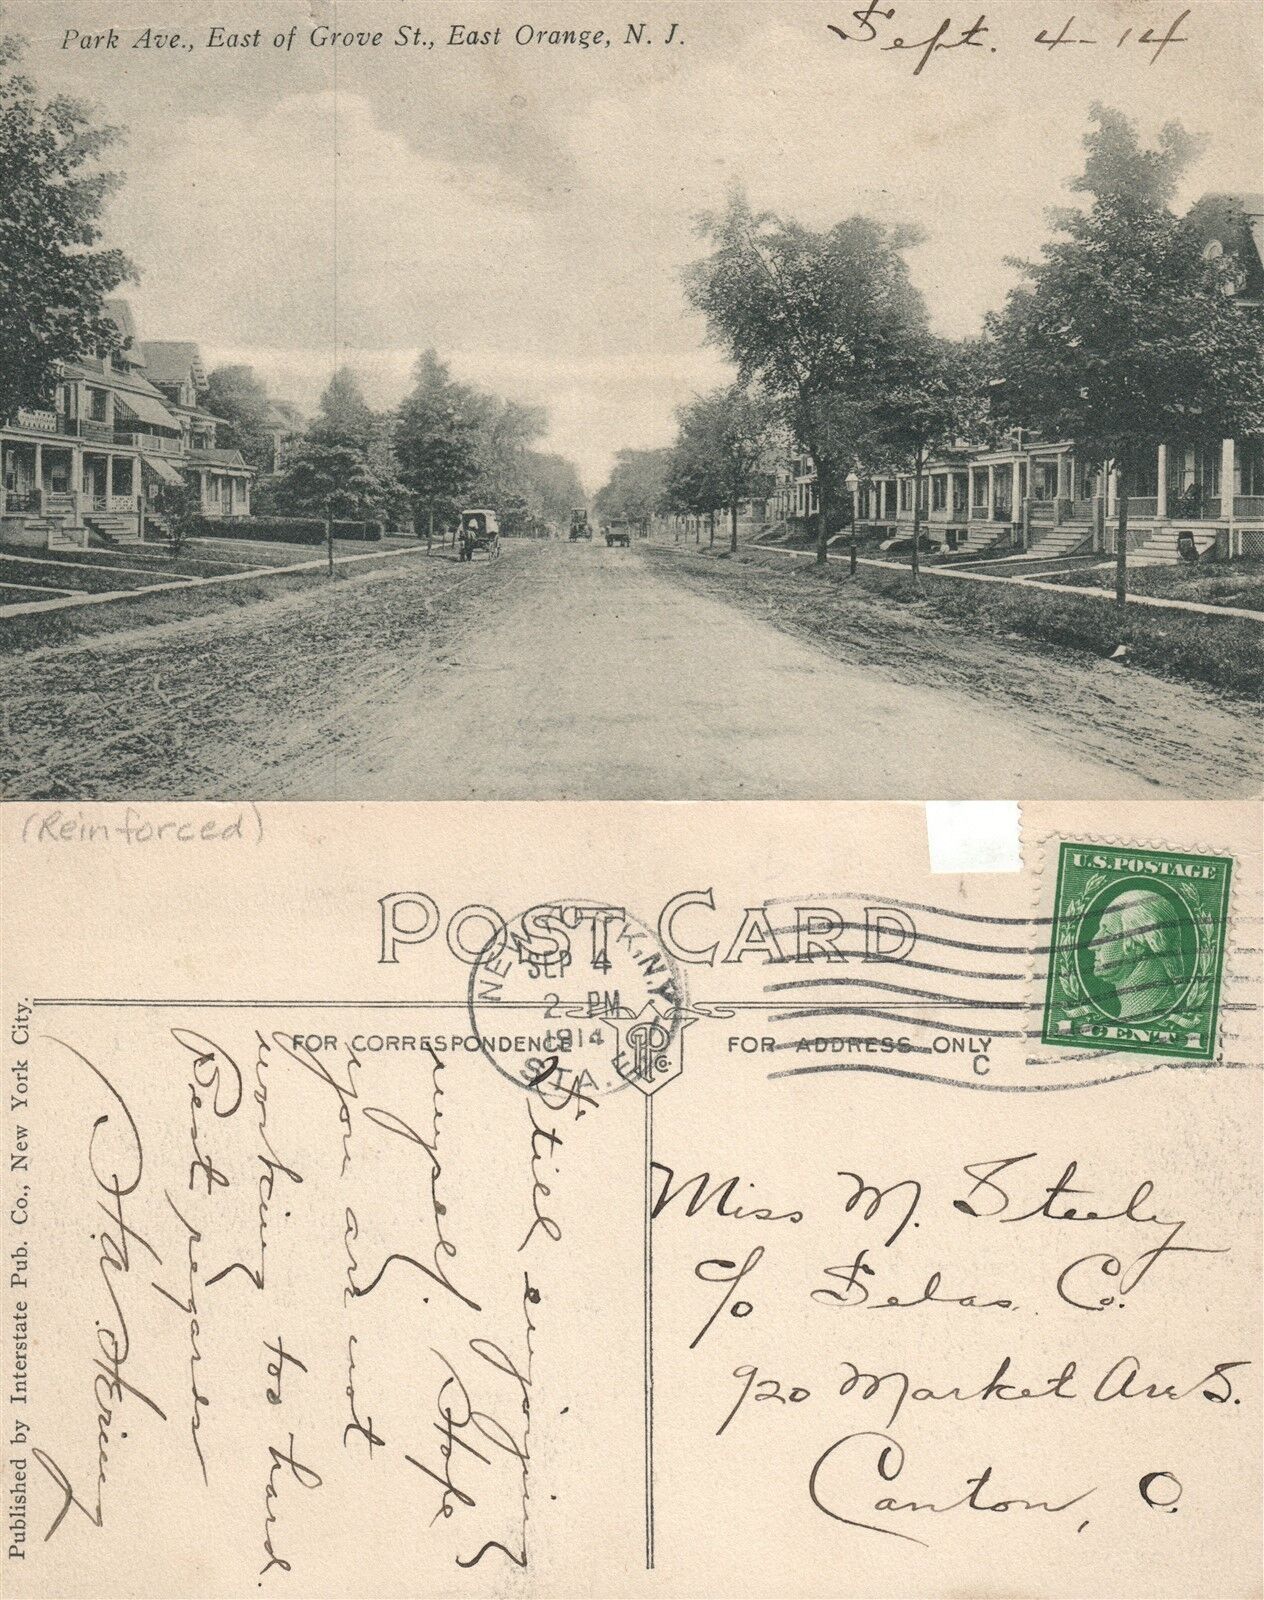 Park Ave., East of Grove St., East Orange, N. J.
Sept. 4-14
(Reinforced)
POST CARD
U.S.POSTAGE
1 CENT 1
NEW YORK, N.Y.
SEP 4
2 PM
1914
STA. E
C
FOR CORRESPONDENCE
FOR ADDRESS ONLY
Published by Interstate Pub. Co., New York City.
Still enjoying
myself. Hope
you are not
working too hard.
Best regards
Miss M. Steely
c/o Selas Co.
920 Market Ave S.
Canton, O.